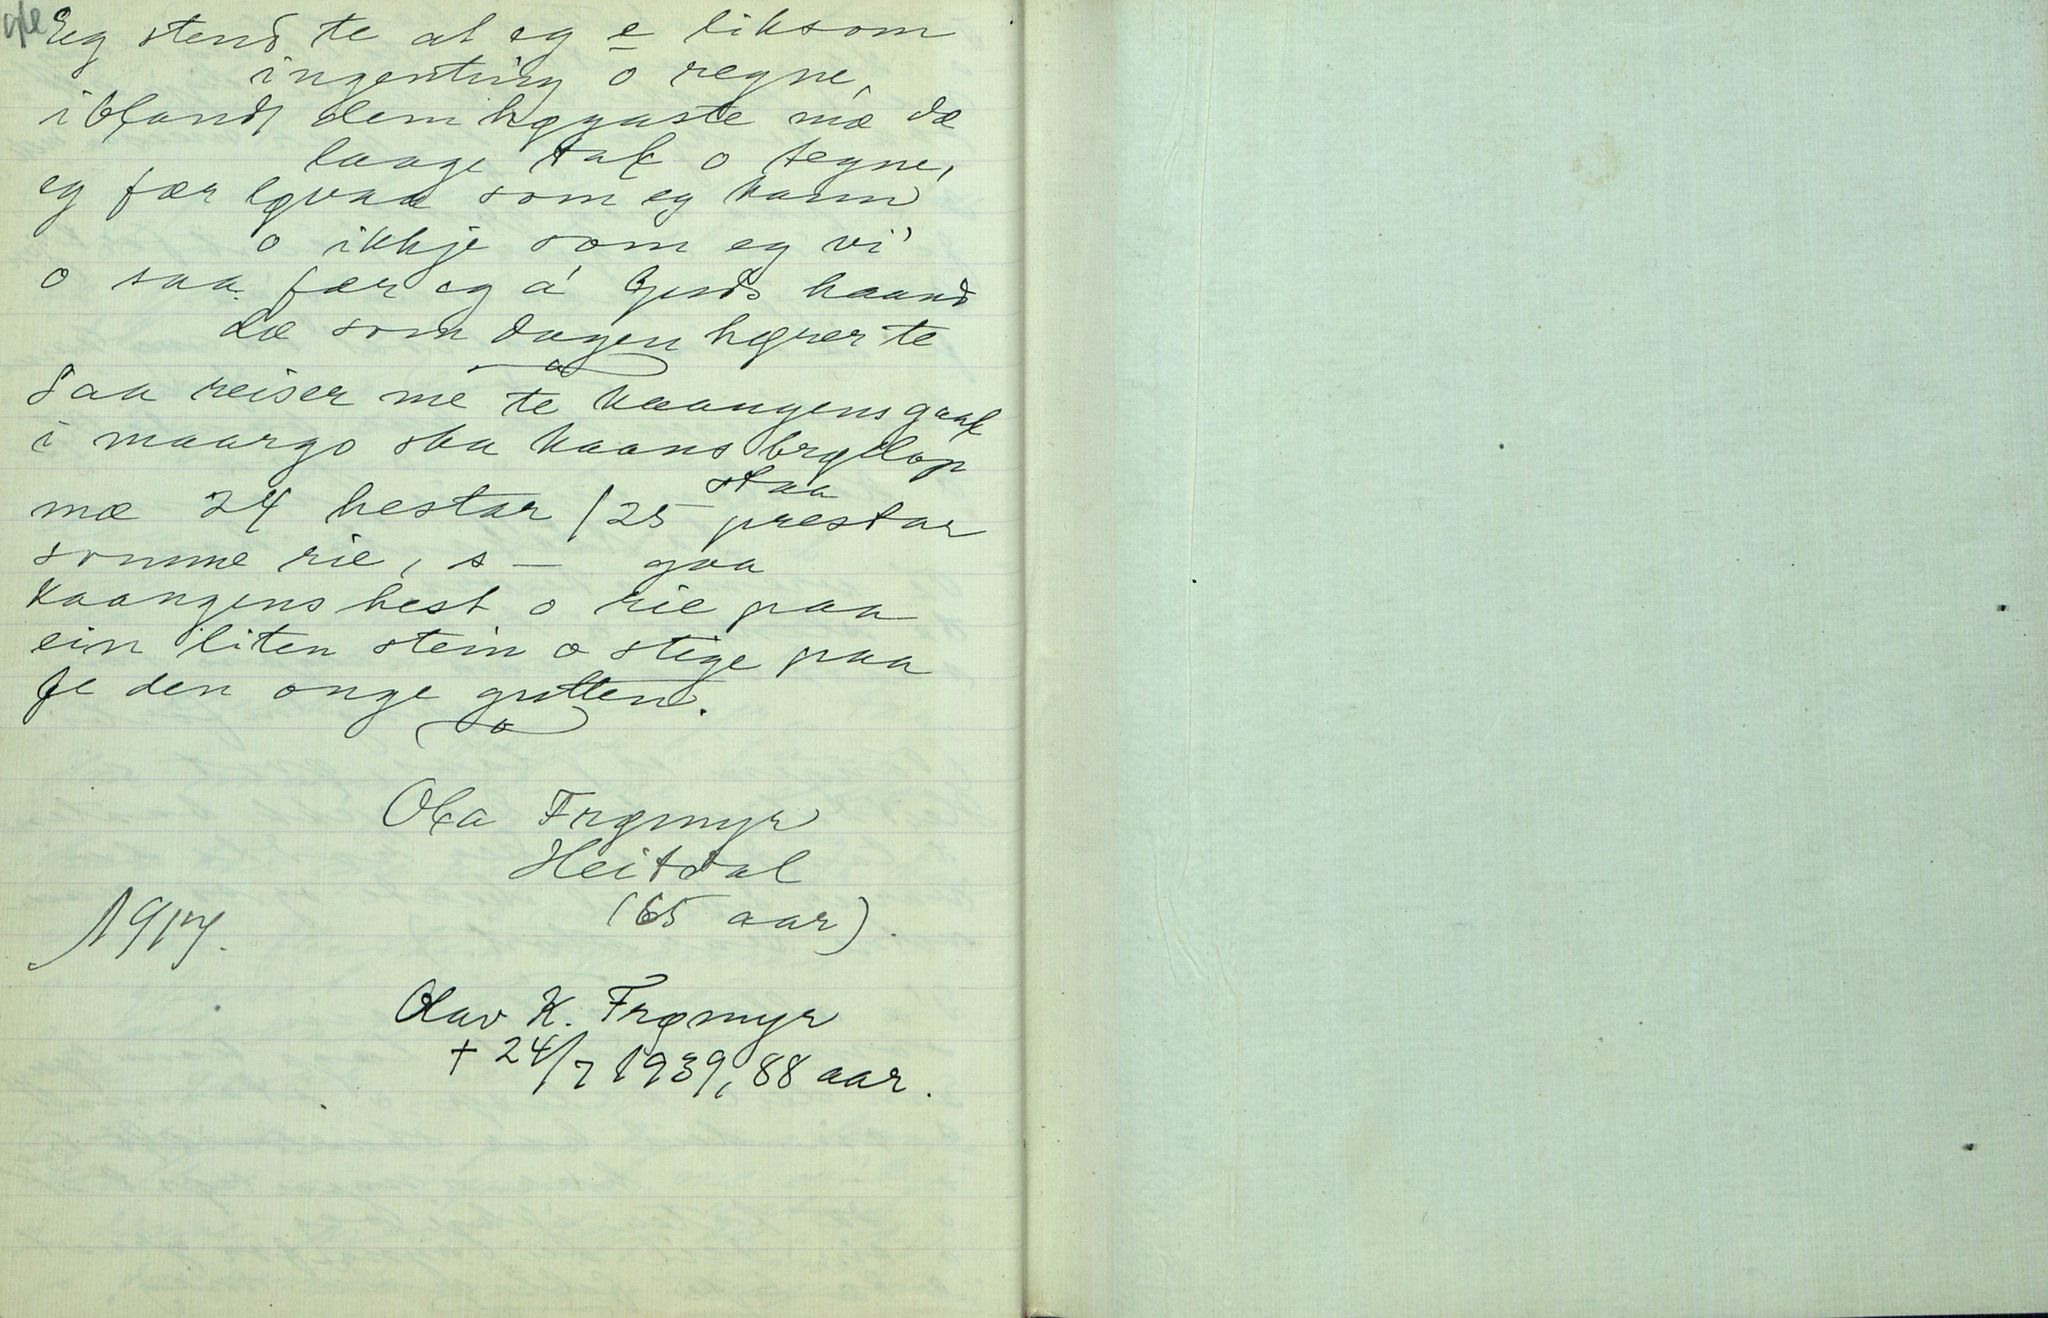 Eg stend te at eg e liksom
ingenting o regne,
iblandt dem høgaste mæ dæ
laage tak o tegne,
eg fær løvaa som eg kann
o ikkje som eg vi'
o saa fær eg á Guds haand
dæ som dagen høyrer te
Saa reiser me te kaangens gaal
i maargo ska kaans brøllop
staa
mæ 24 hestar / 25 prestar
somme rie, s — gaa
kaangens hest o rie paa
ein liten stein o stige paa
fe den onge gutten.
Ola Frømyr
Heitdal
(65 aar).
1917.
Olav K. Frømyr
+ 24/7 1939, 88 aar.